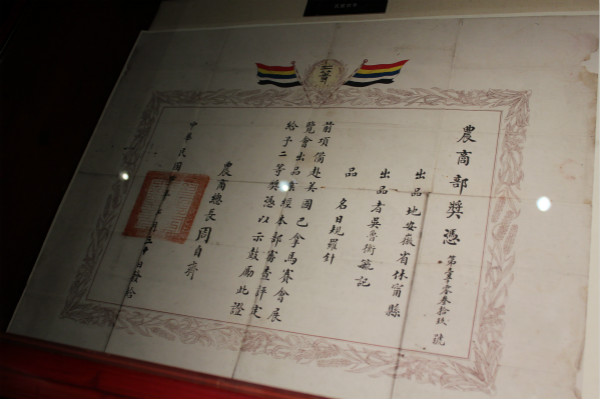 農商部獎憑
號
出品地安徽省休甯縣
出品者吳魯衡毓記
品名日規羅針
前項備赴美國巴拿馬賽會展
覽會出品業經本部審查評定
給予二等獎憑以示鼓厲此證
農商總長周自齊
中華民國